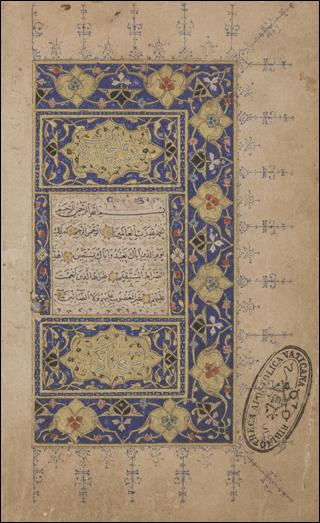 بسم الله الرحمن الرحيم
الحمد لله رب العالمين الرحمن الرحيم مالك
يوم الدين اياك نعبد واياك نستعين اهدنا
الصراط المستقيم صراط الذين انعمت
عليهم غير المغضوب عليهم ولا الضالين
BIBLIOTHECA APOSTOLICA VATICANA